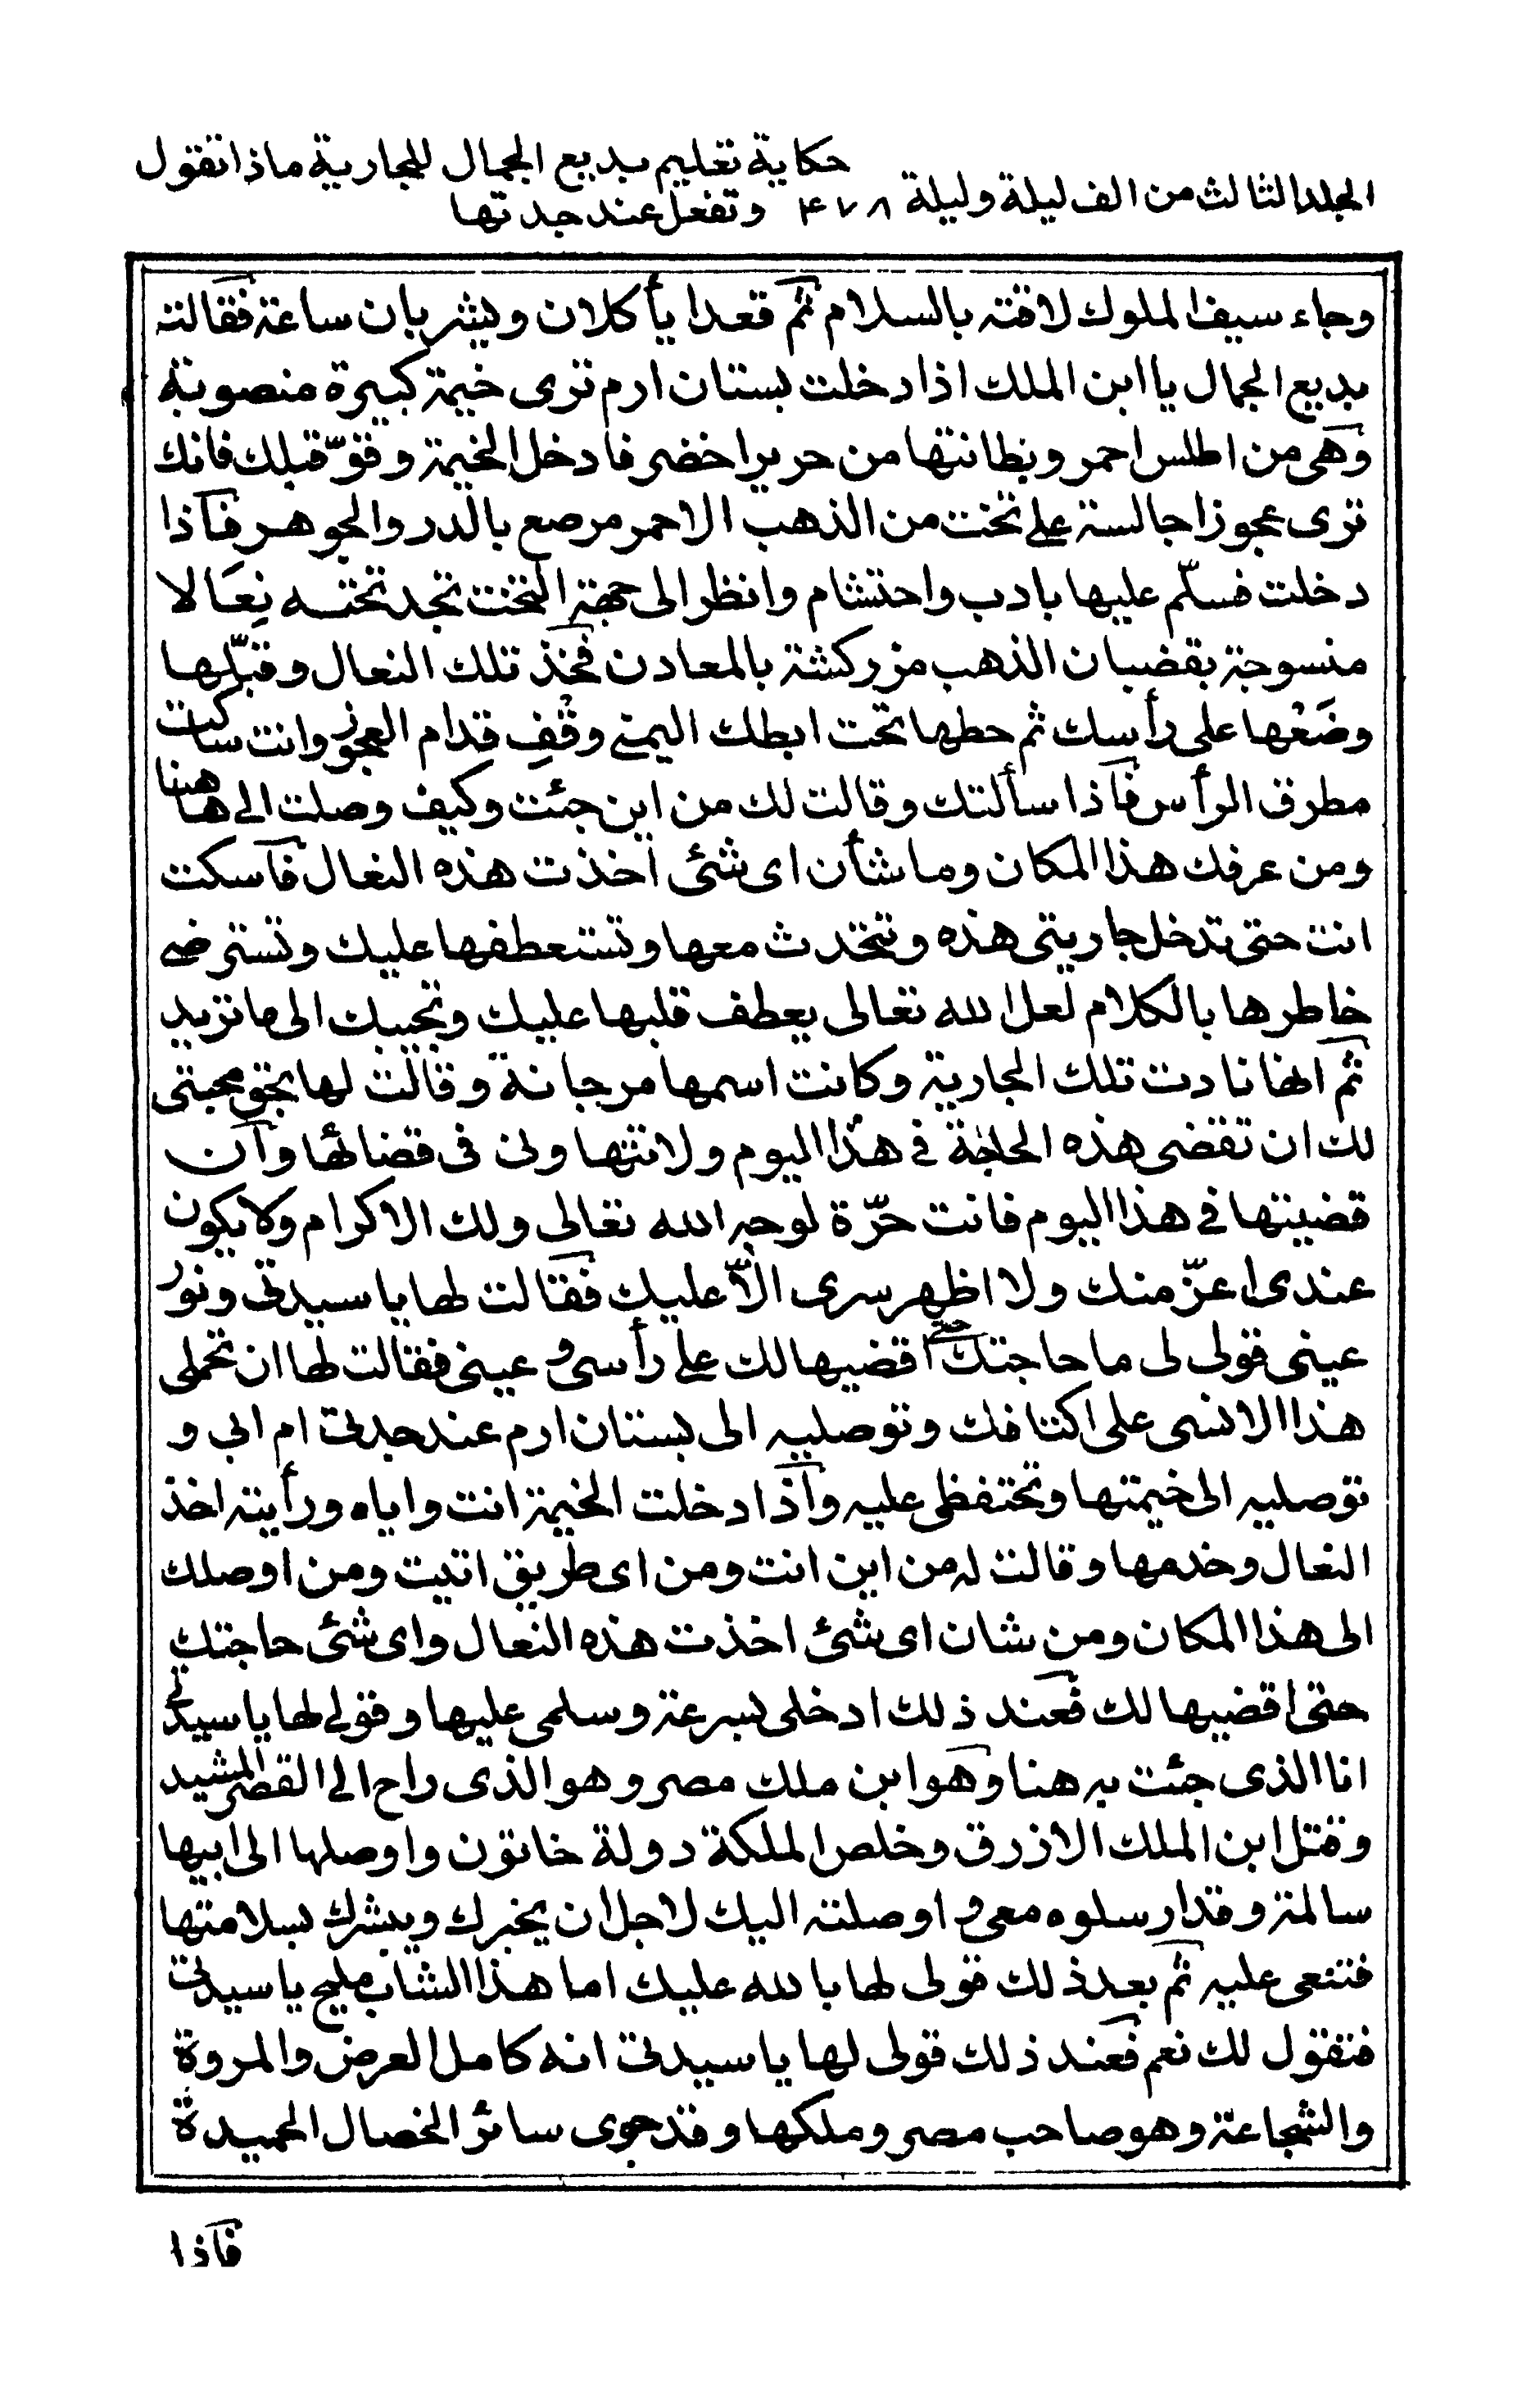 حكاية تعليم بديع الجمال للجارية ماذا تقول
المجلد الثالث من الف ليلة وليلة ٤٧٨ وتفعل عند جدتها
وجاء سيف الملوك لاقته بالسلام ثم قعدا يأكلان ويشربان ساعة فقالت
بديع الجمال يا ابن الملك اذا دخلت بستان ارم ترى خيمة كبيرة منصوبة
وهى من اطلس احمر وبطانتها من حرير اخضر فادخل الخيمة وقوّ قبلك فانك
ترى عجوزا جالسة على تخت من الذهب الاحمر مرصع بالدر والجوهر فاذا
دخلت فسلّم عليها بادب واحتشام وانظر الى جهة التخت تجد تحته نِعَالا
منسوجة بقضبان الذهب مزركشة بالمعادن فخذ تلك النعال وقبّلها
وضَعْها على رأسك ثم حطها تحت ابطك اليمنى وقِفْ قدام العجوز وانت ساكت
مطرق الرأس فاذا سألتك وقالت لك من اين جئت وكيف وصلت الى هاهنا
ومن عرفك هذا المكان وما شأن اى شئى اخذت هذه النعال فاسكت
انت حتى تدخل جاريتى هذه وتتحدث معها وتستعطفها عليك وتسترضى
خاطرها بالكلام لعل الله تعالى يعطف قلبها عليك وتجيبك الى ما تريد
ثم انها نادت تلك الجارية وكانت اسمها مرجانة وقالت لها بحق محبتى
لك ان تقضى هذه الحاجة فى هذا اليوم ولا تتهاونى فى قضائها وان
قضيتها فى هذا اليوم فانت حرّة لوجه الله تعالى ولك الاكرام ولا يكون
عندى اعزّ منك ولا اظهر سرى الّا عليك فقالت لها يا سيدتى ونور
عينى قولى لى ما حاجتك حتى اقضيها لك على رأسى و عينى فقالت لها ان تحملى
هذا الانسى على اكتافك وتوصليه الى بستان ارم عند جدتى ام ابى و
توصليه الى خيمتها وتحتفظى عليه واذا دخلت الخيمة انت واياه ورأيته اخذ
النعال وخدمها وقالت له من اين انت ومن اى طريق اتيت ومن اوصلك
الى هذا المكان ومن شان اى شئ اخذت هذه النعال واى شئى حاجتك
حتى اقضيها لك فعند ذلك ادخلى بسرعة وسلمى عليها وقولى لها يا سيدتى
انا الذى جئت به هنا وهو ابن ملك مصر وهو الذى راح الى القصر المشيد
وقتل ابن الملك الازرق وخلص الملكة دولة خاتون واوصلها الى ابيها
سالمة وقد ارسلوه معى و اوصلته اليك لاجل ان يخبرك ويبشرك بسلامتها
فتنعمى عليه ثم بعد ذلك قولى لها بالله عليك اما هذا الشاب مليح يا سيدتى
فتقول لك نعم فعند ذلك قولى لها يا سيدتى انه كامل العرض والمروة
والشجاعة وهو صاحب مصر وملكها وقد حوى سائر الخصال الحميدة
فاذا